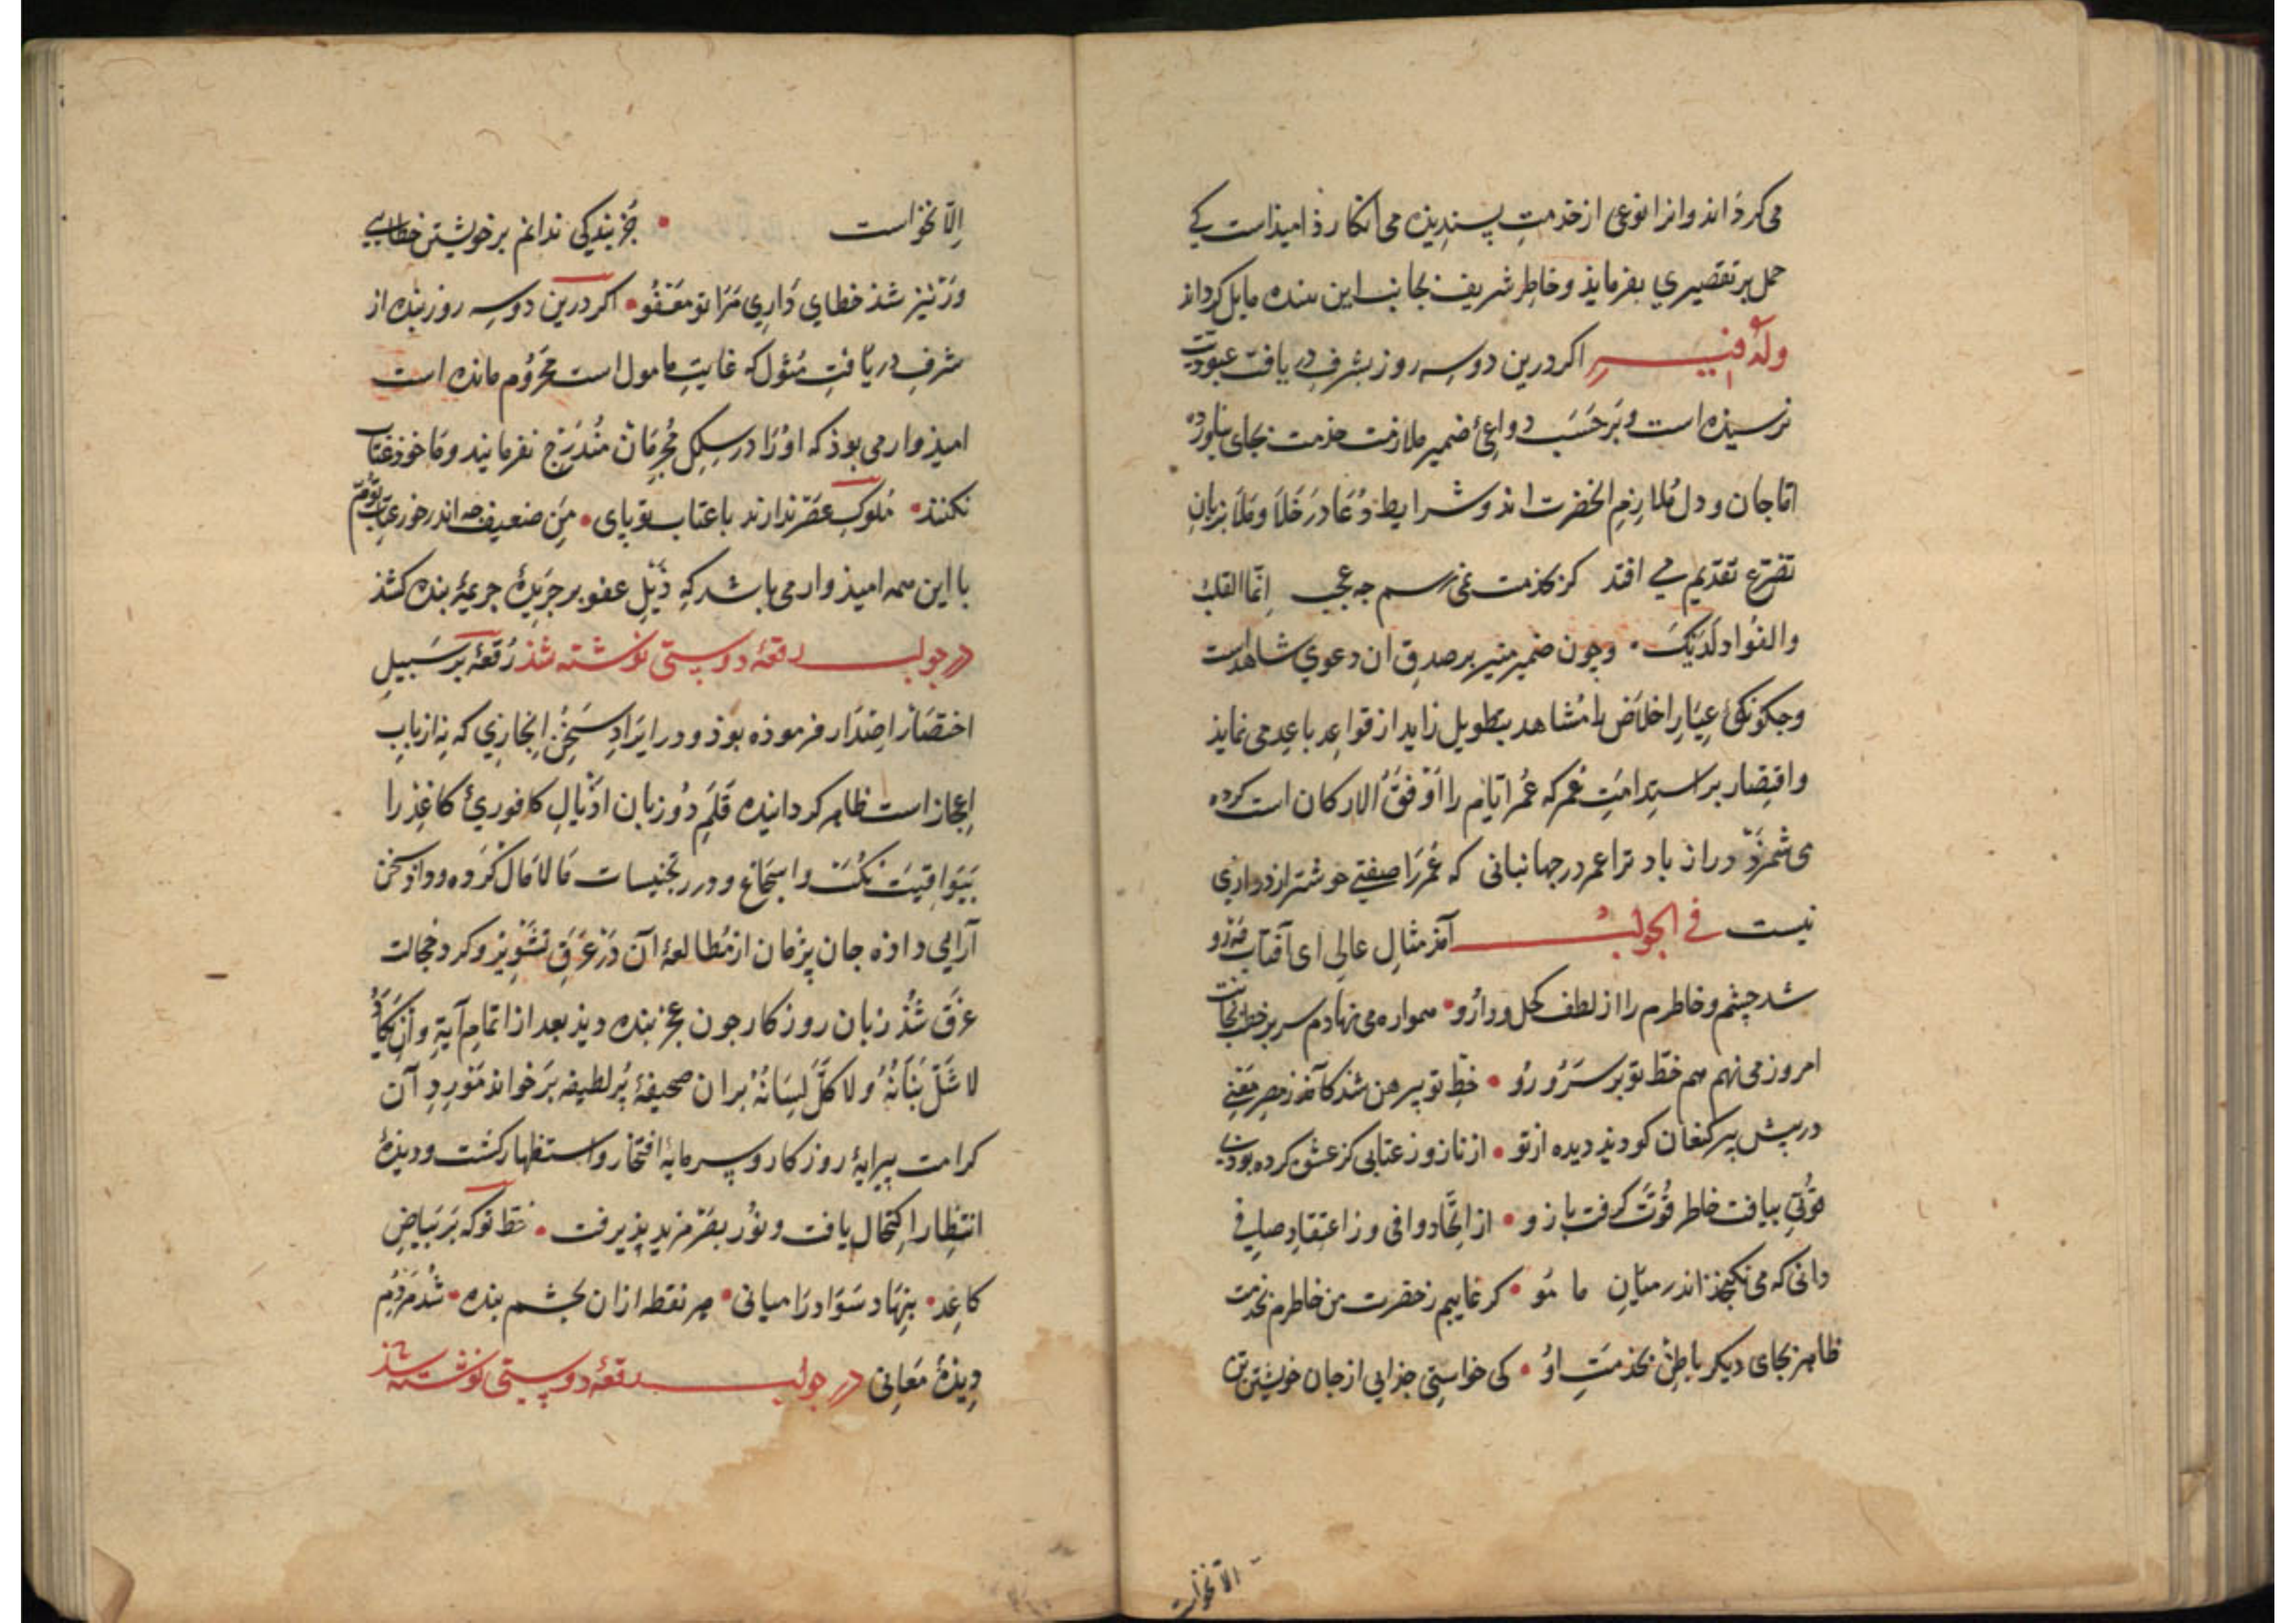 می کرداند وانرا نوعی از خدمتِ پسندیده می انکارذ امیذاست کی
حمل بر تقصیری بفرمایذ وخاطر شریف بجانب این بنده مایل کرداند
وله فیه اکر درین دوسه روز بشرف دریافت عبودیت
نرسیده است وبرحَسَب دواعیٔ ضمیر ملازمت خدمت بجای نیاورده
اما جان و دل مُلازِمِ الحضرت اند و شرایط دُعَا در خَلَا ومَلَا بزبانِ
تضرع تقدیم می افتد کر بخدمت نمی رسم چه عجب اِنّما القلبُ
والفؤاد لَدَیْکَ ۰ وچون ضمیر منیر بر صدقِ ان دعوی شاهدست
وجکونکیٔ عِیَارِ اخلاص را مُشاهد بتطویل زاید از قواعد باعِد می نماید
واقتصار بر استدامتِ عُمر که عُمر ایّام را اَوْفَقُ الارکان است کرده
می شمرَذ دراز باد ترا عمر در جهانبانی که عُمر رَا صِفتی خوشتر از درازی
نیست فی الجواب آمذ مثالِ عالی ای آفتاب
شد چشم وخاطرم را از لطف کحل ودارُو • همواره می نهادم سر بر خط
امروز می نهم هم خطّ تو بر سَرُ و رُو • خطِ تو پیرهن شذ کآمذ ز مصر مَعْنی
در پیش پیر کنعان کو دیذ دیده از تو • از ناز وز عتابی کز عشق کرده بودی
قُوّتی بیافت خاطر قُوّت کرفت بازو • از اتّحاد وافی وز اعتقاد صافی
دانی که می نکنجذ اندر میانِ ما مُو • کر غایبم ز حضرت من خاطرم بخدمت
ظاهر بجای دیکر باطن بخذمتِ اوُ • کی خواستی جذایی از جان خویشتن تن
الا نخواست
اِلّا نخواست • جُز بندکی ندانم بر خویشتن خطایی
ورْ نیز شذ خطای دَارِی مَرَا تو مَعْفُو • اکر درین دوسه روز بنده از
شرفِ دریافْتِ مَثول که غایتِ مامول است محرُوم مانده است
امیذوار می بوذ که اورَا در سِلکِ مُجرِمَان مُنْدَرِج نفرمایند ومَاخوذ عتاب
نکنند • مُلوکِ عصر ندارند با عتاب تو پای • مَنِ ضعیف چه اندر خور عِتابِ توَم
با این همه امیذوار می باشد که ذَیْلِ عفو بر جَرِیدهٔ جریمهٔ بنده کشذ
در جواب رقعهٔ دوستی نوشته شذ رُقعهٔ بر سَبیلِ
اختصار اصدَار فرموذه بوذ ودر ایرَادِ سَخُن اِنجازِی که نه از بابِ
اِعجاز است ظاهر کردانیده قَلَمِ دُو زبان اذْیالِ کافوریٔ کاغذ را
بَیَواقیت نکُت واسجَاع و درر تجنیسات مَالامَال کَرده وداد سخن
آرایی داده جان پژمان از مُطالعهٔ آن دَرْ عَرَقِ تشویْر وکرد خجالت
غرَق شُذ زبان روزکار چون عجز بنده دیذ بعد از اتمامِ آیهٔ وَاِنْ یَکَادُ
لا شَلَّ بَنَانُهُ ولا کَلَّ لِسَانُهُ بران صحیفهٔ پُرلطیفه بَر خواند مَوْرِدِ آن
کرامت پیرایهٔ روزکار و سرمایهٔ افتخار واستظهار کشت ودیدهٔ
انتظار اِکتحال یافت ونوُر بصَر مزید پذیرفت • خط تو که بَر بیاضِ
کاغد • بنِهَاد سَوَاد رَا میانی • هر نقطه ازان بچشم بنده • شُد مَردُمِ
دِیدهٔ مَعَانی در جواب رقعهٔ دوستی نوشته شذ